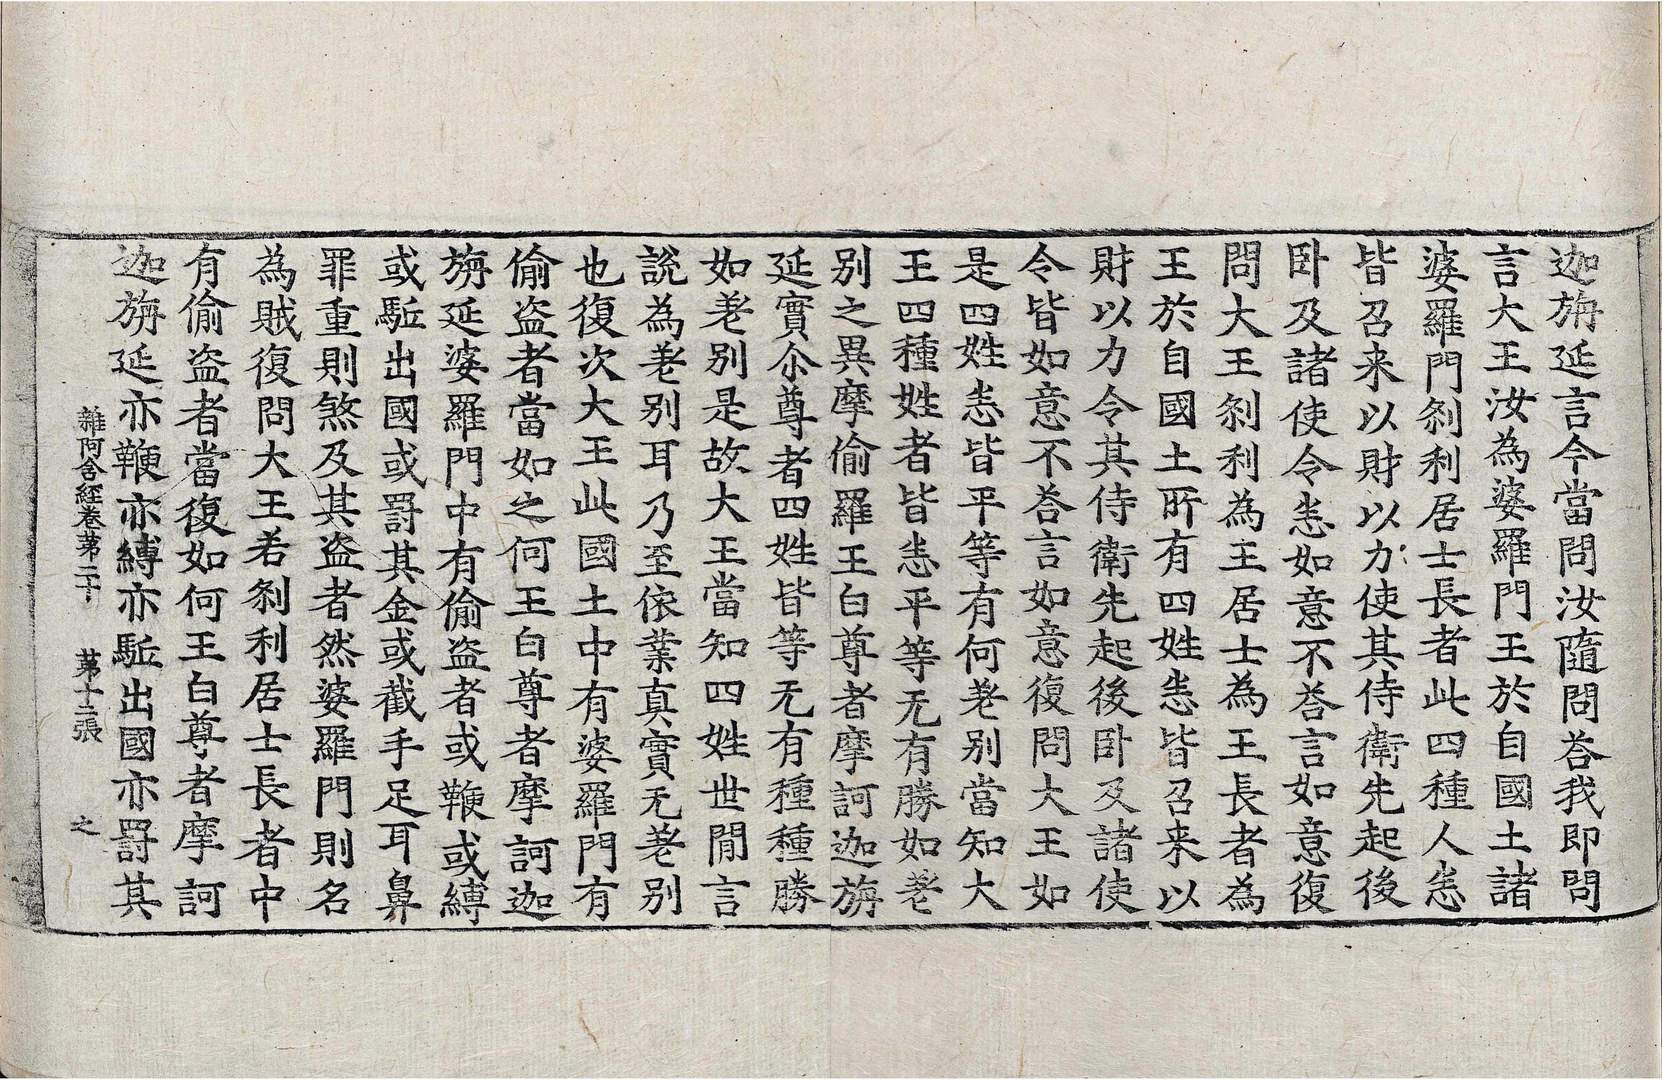 迦旃延言今當問汝隨問荅我即問
言大王汝為婆羅門王於自國土諸
婆羅門剎利居士長者此四種人悉
皆召来以財以力使其侍衛先起後
卧及諸使令悉如意不荅言如意復
問大王剎利為王居士為王長者為
王於自國土所有四姓悉皆召来以
財以力令其侍衛先起後卧及諸使
令皆如意不荅言如意復問大王如
是四姓悉皆平等有何差別當知大
王四種姓者皆悉平等无有勝如差
別之異摩偷羅王白尊者摩訶迦旃
延實尒尊者四姓皆等无有種種勝
如差別是故大王當知四姓世間言
說為差別耳乃至依業真實无差別
也復次大王此國土中有婆羅門有
偷盗者當如之何王白尊者摩訶迦
旃延婆羅門中有偷盗者或鞭或縛
或駈出國或罸其金或截手足耳鼻
罪重則煞及其盗者然婆羅門則名
為賊復問大王若剎利居士長者中
有偷盗者當復如何王白尊者摩訶
迦旃延亦鞭亦縛亦駈出國亦罸其
雜阿含經卷第二十 第十三張 之